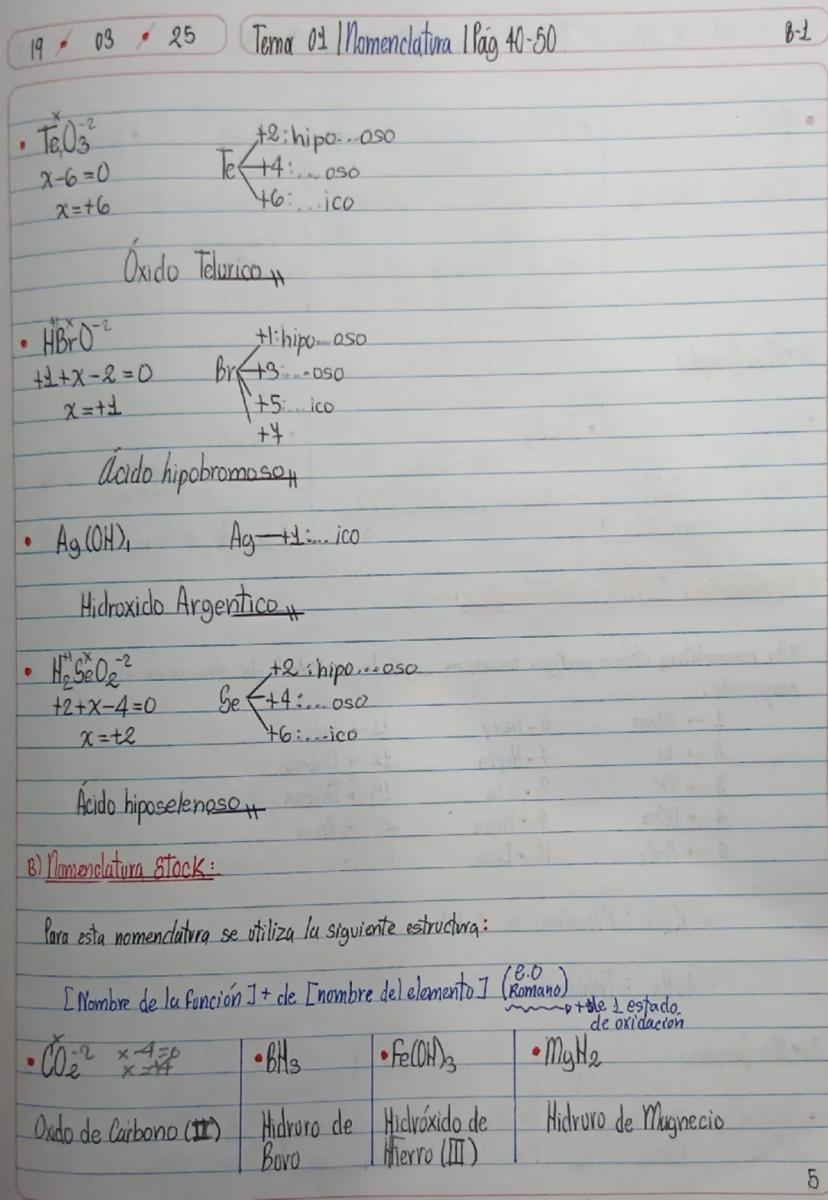 19 • 03 • 25 Tema 01 | Nomenclatura | Pág 40-50 B-1
• TeO₃⁻² x
x-6=0
x=+6
Te +2: hipo...oso
+4: ... oso
+6: ... ico
Óxido Telurico
• HBrO⁻² +1 x
+1+x-2=0
x=+1
Br +1: hipo...oso
+3: ...oso
+5: ... ico
+7
Ácido hipobromoso
• Ag(OH)₁ Ag—+1: ... ico
Hidroxido Argentico
• H₂SeO₂⁻² +1 x
+2+x-4=0
x=+2
Se +2: hipo...oso
+4: ... oso
+6: ...ico
Ácido hiposelenoso
B) Nomenclatura Stock:
Para esta nomenclatura se utiliza la siguiente estructura:
[Nombre de la función] + de [nombre del elemento] (e.o Romano)
→ + de 1 estado
de oxidación
• CO₂⁻² x x-4=0
x=+4
Oxido de Carbono (II)
• BH₃
Hidruro de
Boro
• Fe(OH)₃
Hidróxido de
Hierro (III)
• MgH₂
Hidruro de Magnecio
5